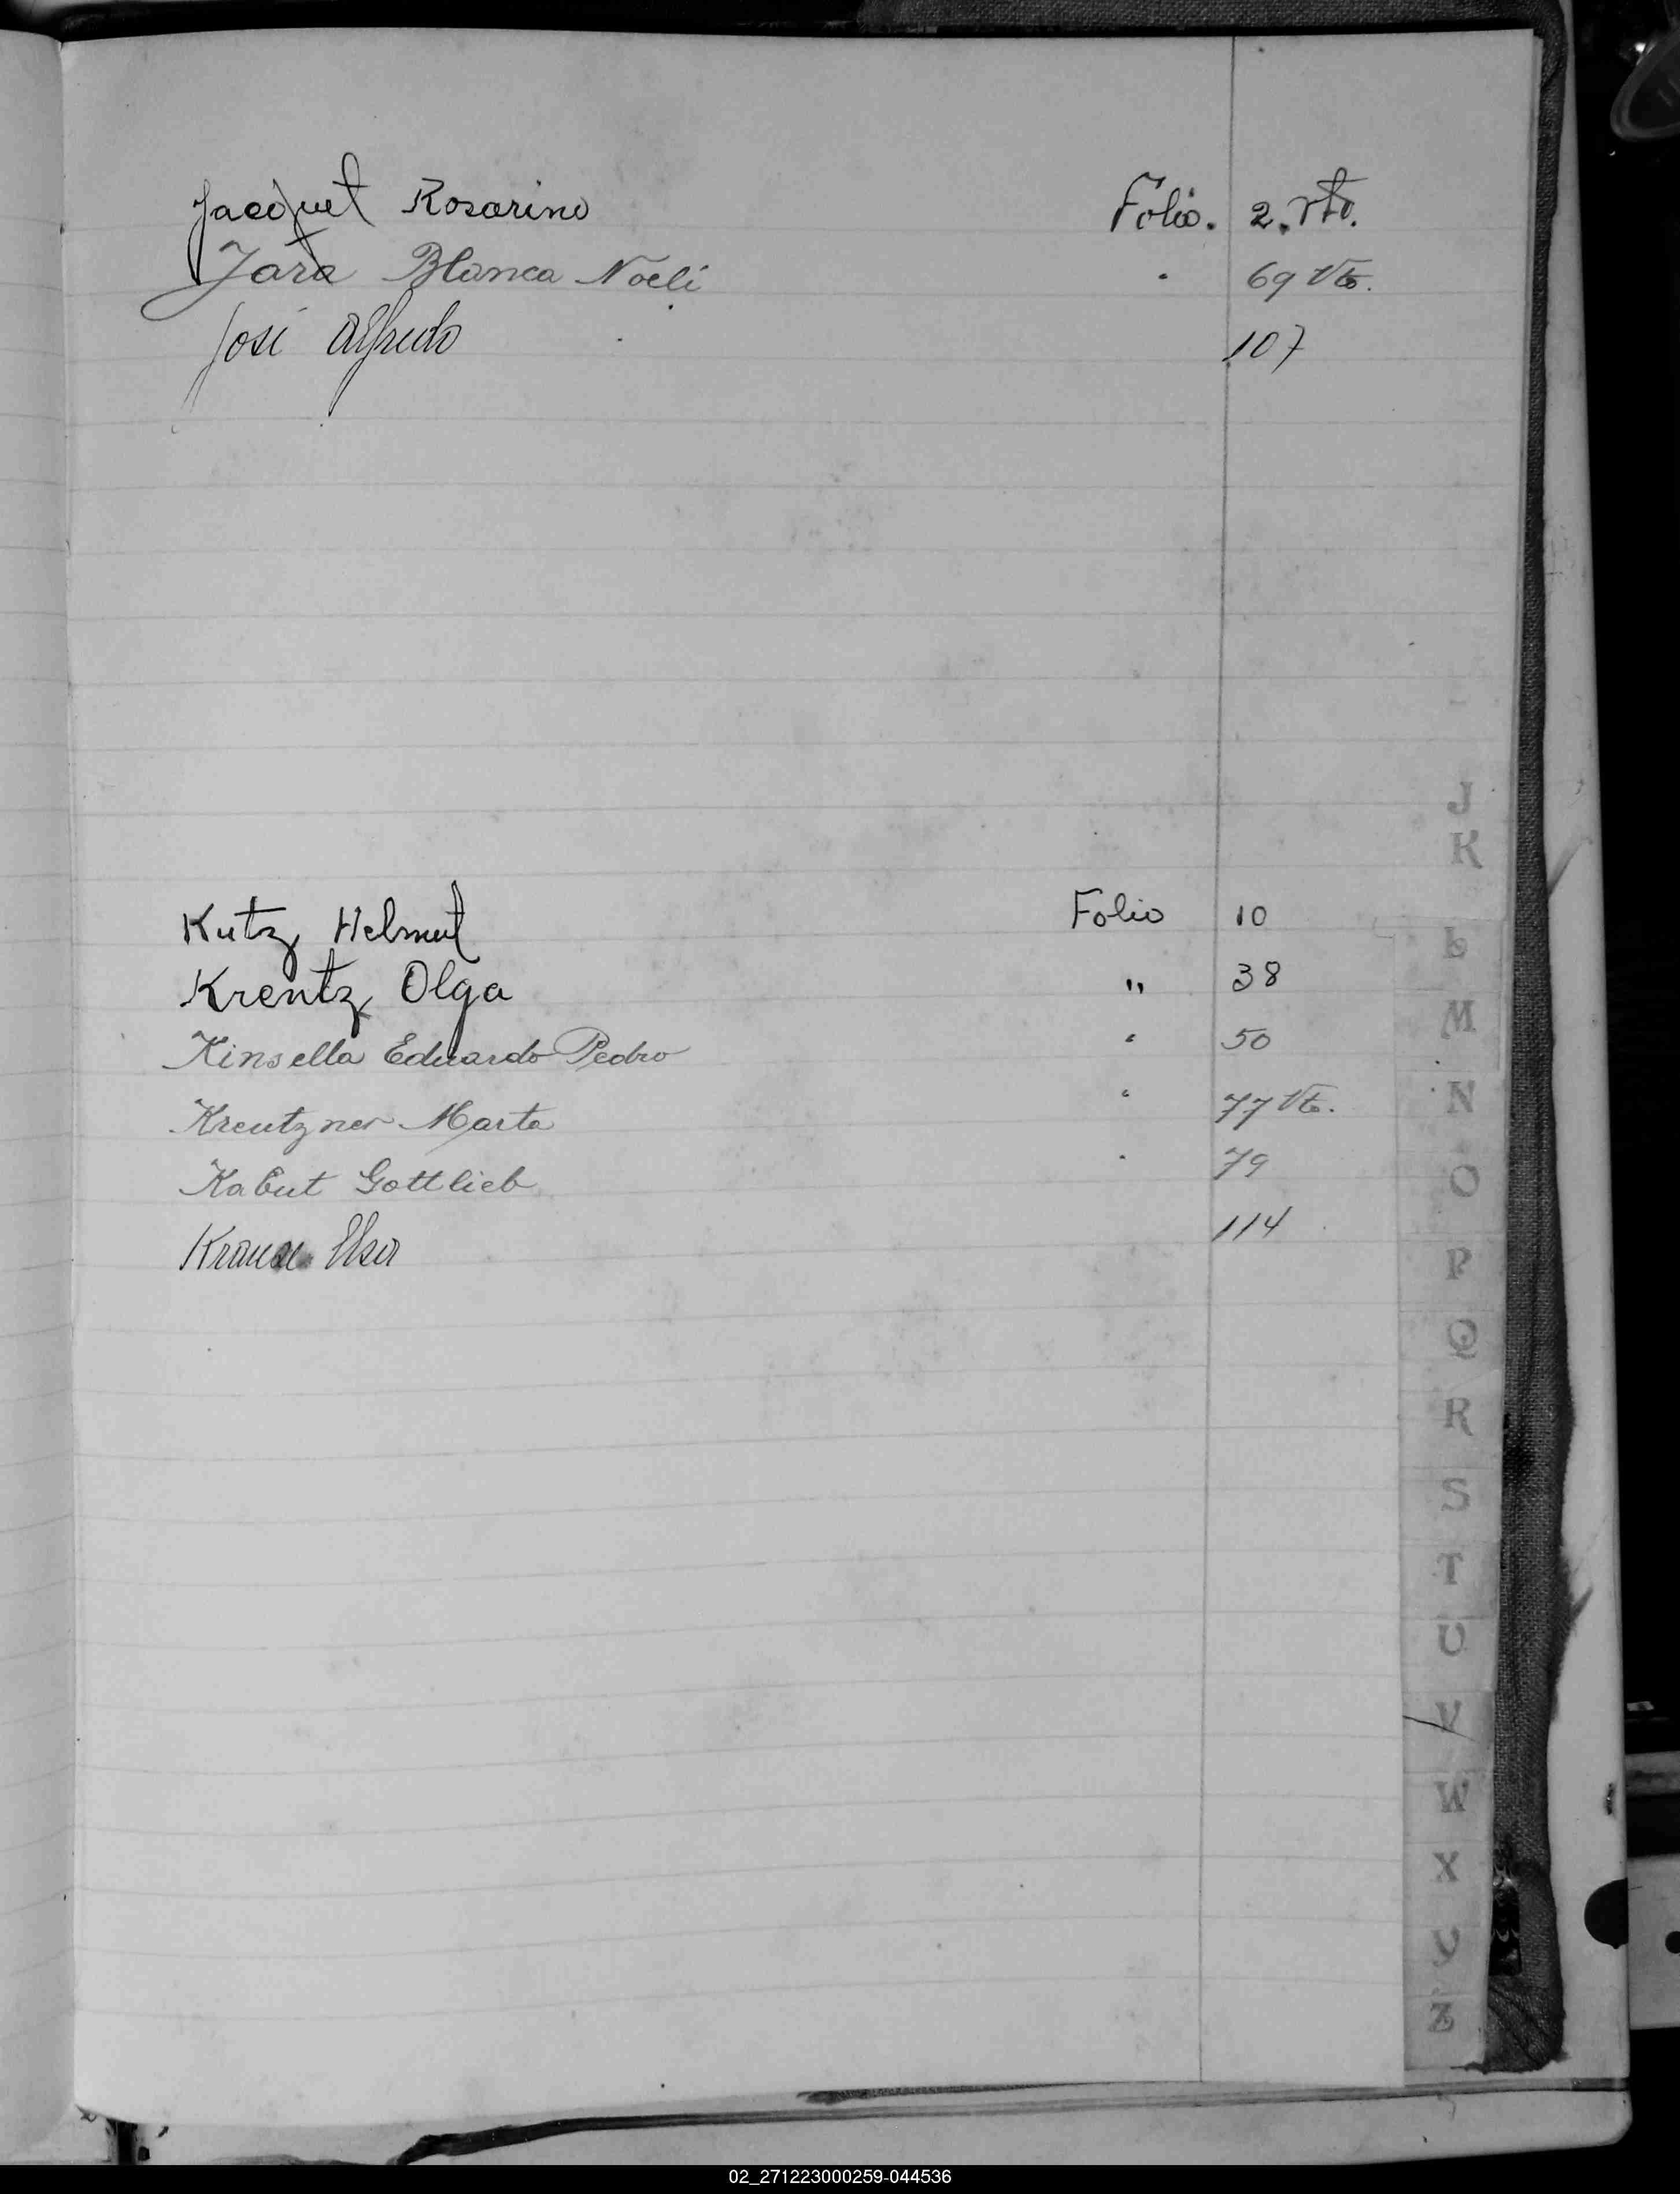 Jacquet Rosarino Folio. 2. vto.
Jara Blanca Noeli " 69 Vto.
José Alfredo 107
J
K
Kutz, Helmut Folio 10
Krentz, Olga " 38
Kinsella Eduardo Pedro " 50
Kreutzner Marta " 77 Vto.
Kabut Gottlieb " 79
Krause Elsa 114
L
M
N
O
P
Q
R
S
T
U
V
W
X
Y
Z
02_271223000259-044536